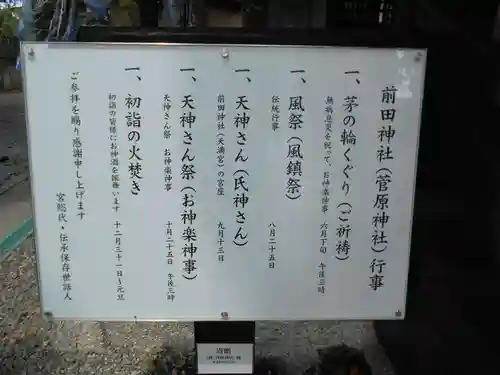 前田神社(菅原神社)行事
一、茅の輪くぐり(ご祈祷)
無病息災を祝って、お神楽神事 六月下旬 午後三時
一、風祭(風鎮祭)
伝統行事 八月二十五日
一、天神さん(氏神さん)
前田神社(天満宮)の宮座 九月十三日
一、天神さん祭(お神楽神事)
天神さん祭 お神楽神事 十月二十五日 午後三時
一、初詣の火焚き
初詣の皆様にお神酒を振舞います 十二月三十一日〜元旦
ご参拝を賜り感謝申し上げます
宮総代・伝承保存世話人
寄贈